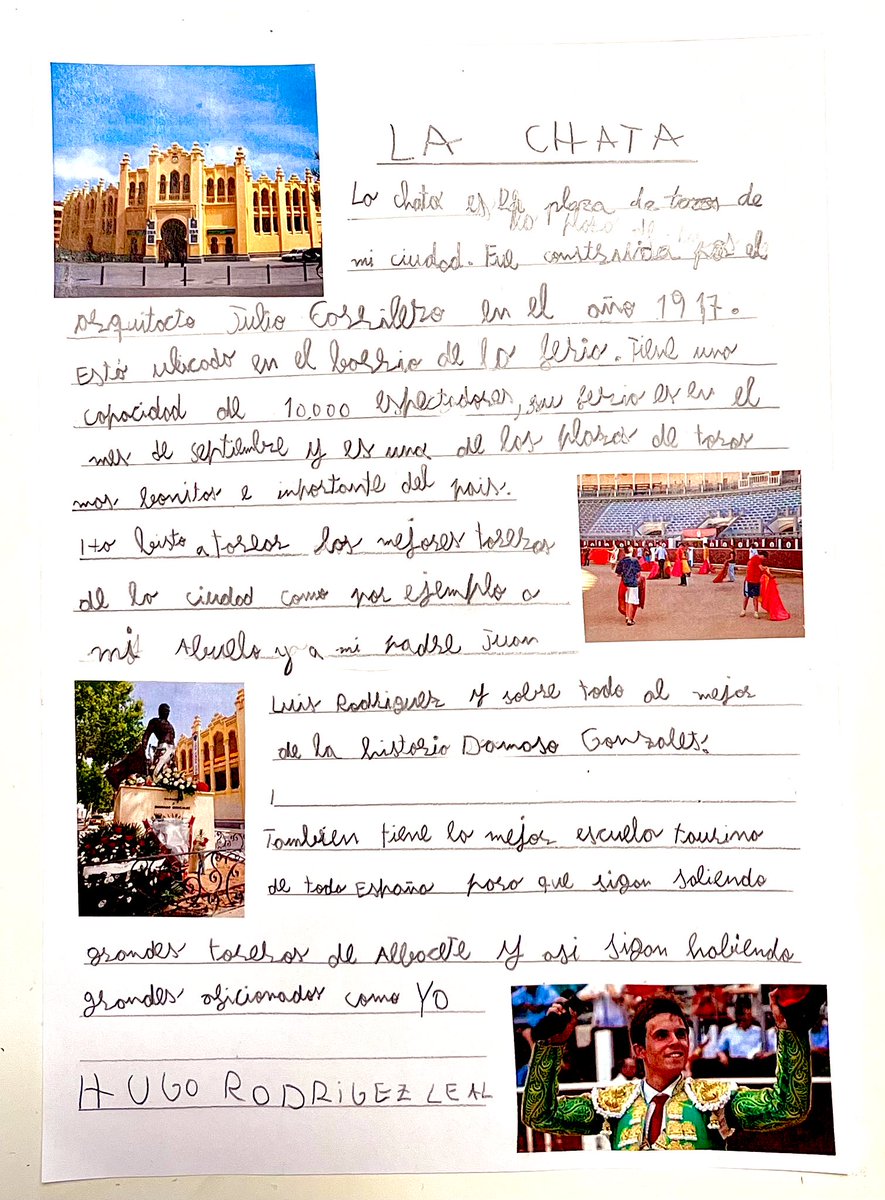 LA CHATA
La chata es la plaza de toros de
mi ciudad. Fue construida por el
arquitacto Julio Carrilero en el año 1917.
Está ubicado en el barrio de la feria. Tiene una
capacidad de 10,000 espectadores, su feria es en el
mes de septiembre y es una de las plazas de toros
mas bonitas e importante del pais.
Ha bisto a torear los mejores toreros
de la ciudad como por ejemplo a
mi Abuelo y a mi padre Juan
Luis Rodriguez y sobre todo al mejor
de la historia Damaso Gonzalez.
También tiene la mejor escuela taurina
de toda España para que sigan saliendo
grandes toreros de Albacete y asi sigan habiendo
grandes aficionados como YO
HUGO RODRIGEZ LEAL